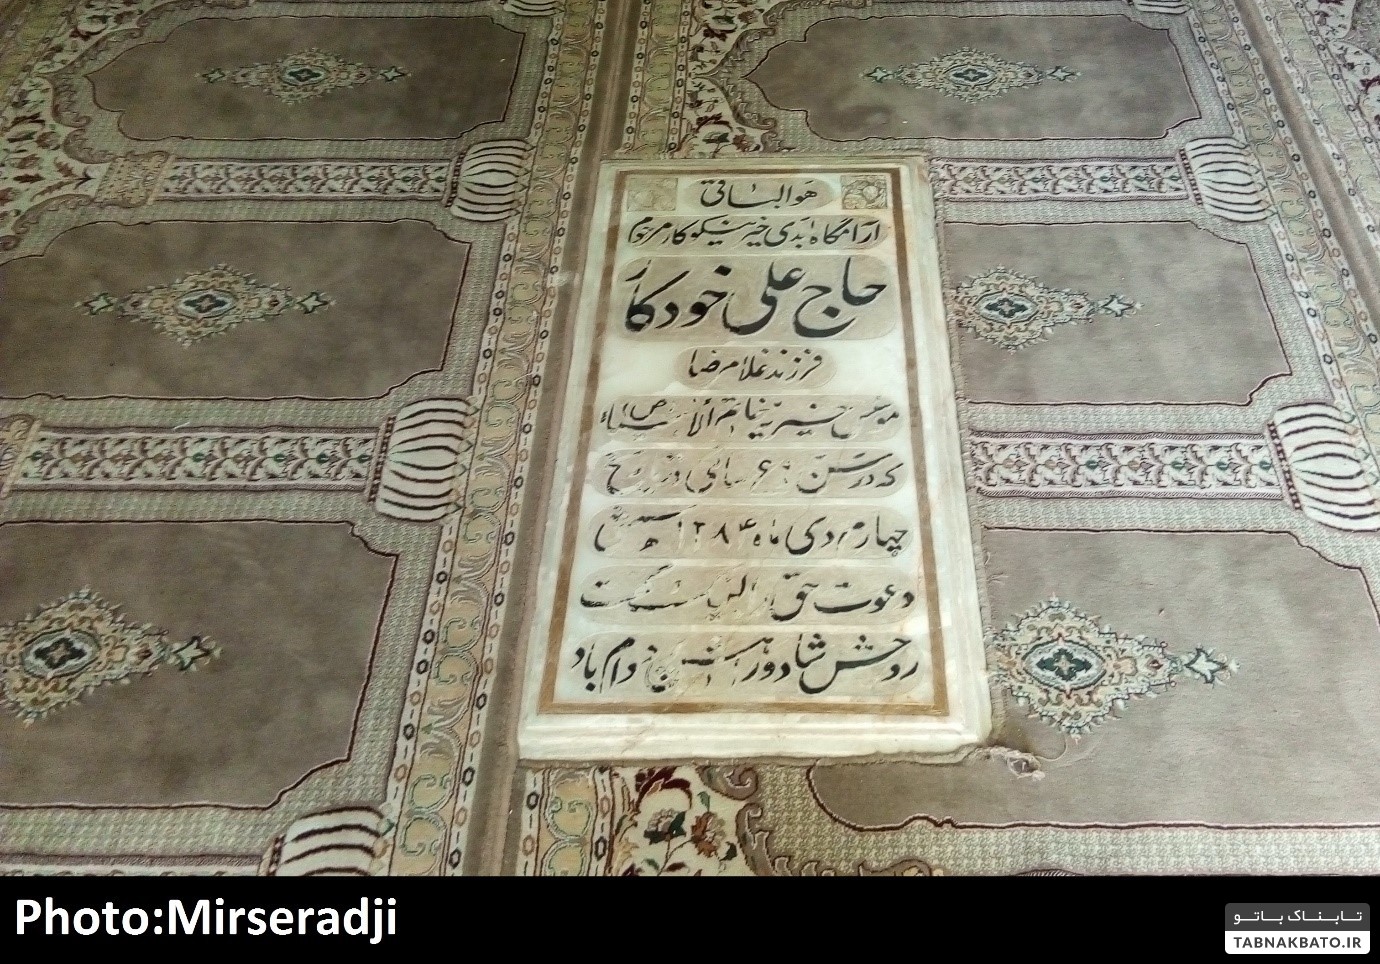 هوالباقی
آرامگاه ابدی خیر نیکوکار مرحوم
حاج علی خودکار
فرزند غلامرضا
خاتم الانبیاء (ص)
که در سن سالگی در تاریخ
چهارم دی ماه ۱۳۸۴
دعوت حق را لبیک گفت
روحش شاد و راهش دوام باد
Photo:Mirseradji
تابناک باتو
TABNAKBATO.IR